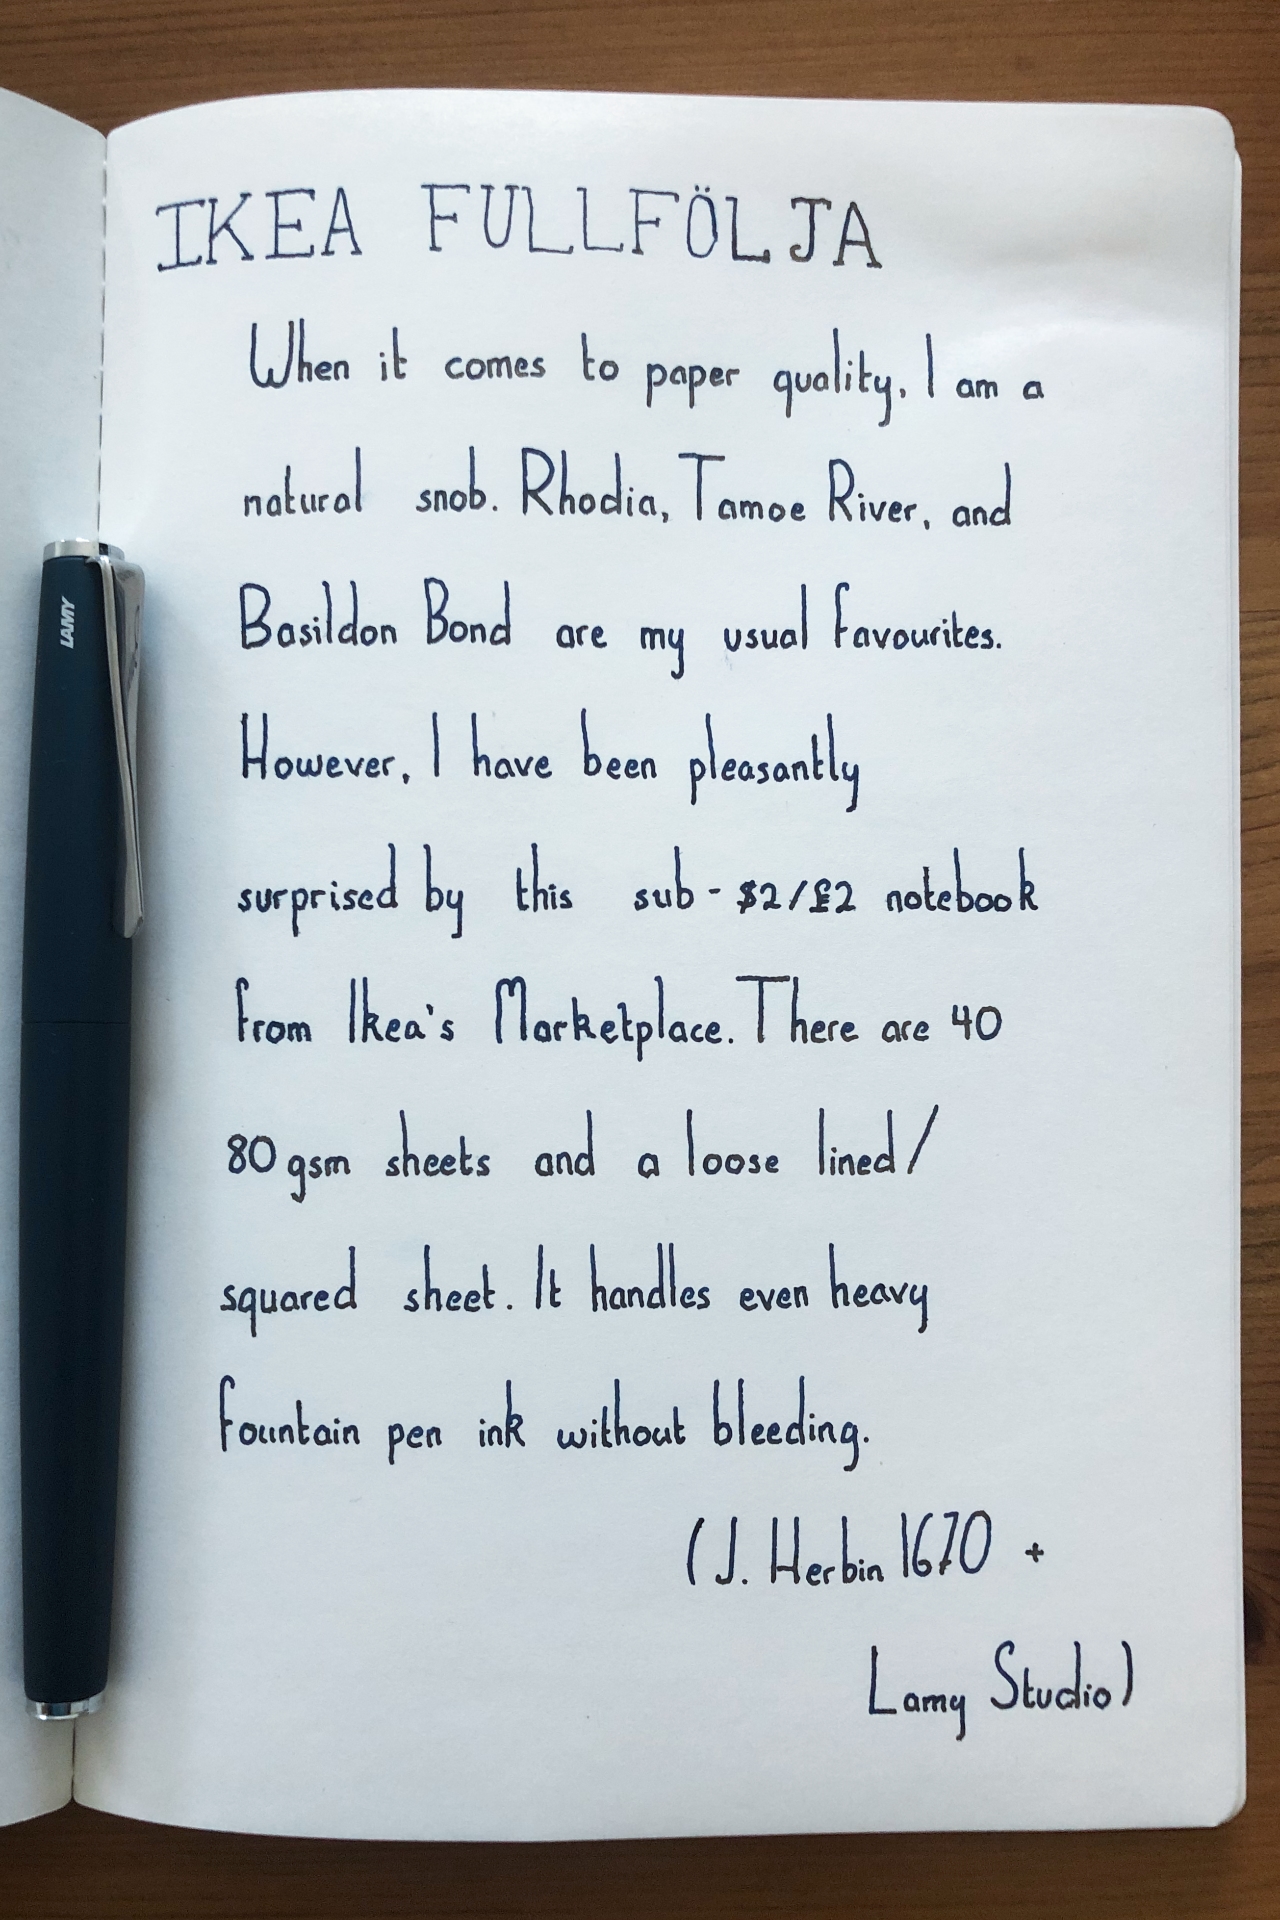 IKEA FULLFÖLJA
When it comes to paper quality, I am a
natural snob. Rhodia, Tamoe River, and
Basildon Bond are my usual favourites.
However, I have been pleasantly
surprised by this sub-$2/£2 notebook
from Ikea's Marketplace. There are 40
80 gsm sheets and a loose lined/
squared sheet. It handles even heavy
fountain pen ink without bleeding.
(J. Herbin 1670 +
Lamy Studio)
LAMY